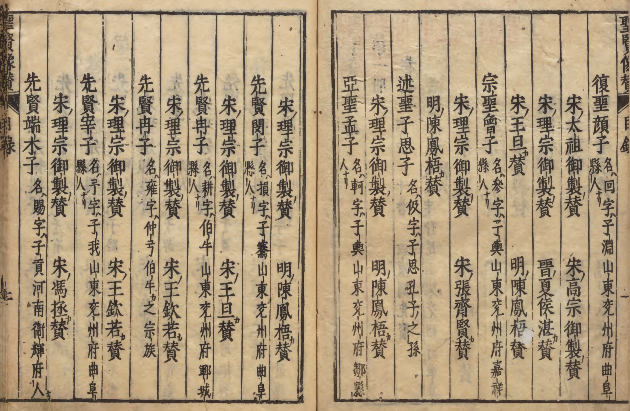 聖賢像賛 目錄
復聖顔子 名回字子淵山東兗州府曲阜縣人
宋太祖御製賛 宋高宗御製賛
宋理宗御製賛 晉夏侯湛賛
宋王旦賛 明陳鳳梧賛
宗聖曾子 名參字子輿山東兗州府嘉祥縣人
宋理宗御製賛 宋張齊賢賛
明陳鳳梧賛
述聖子思子 名伋字子思孔子之孫
宋理宗御製賛 明陳鳳梧賛
亞聖孟子 名軻字子輿山東兗州府鄒縣人
宋理宗御製賛 明陳鳳梧賛
先賢閔子 名損字子騫山東兗州府曲阜縣人
宋理宗御製賛 宋王旦賛
先賢冉子 名耕字伯牛山東兗州府鄆城縣人
宋理宗御製賛 宋王欽若賛
先賢冉子 名雍字仲弓伯牛之宗族
宋理宗御製賛 宋王欽若賛
先賢宰子 名予字子我山東兗州府曲阜縣人
宋理宗御製賛 宋馮拯賛
先賢端木子 名賜字子貢河南衛輝府人
聖賢像賛